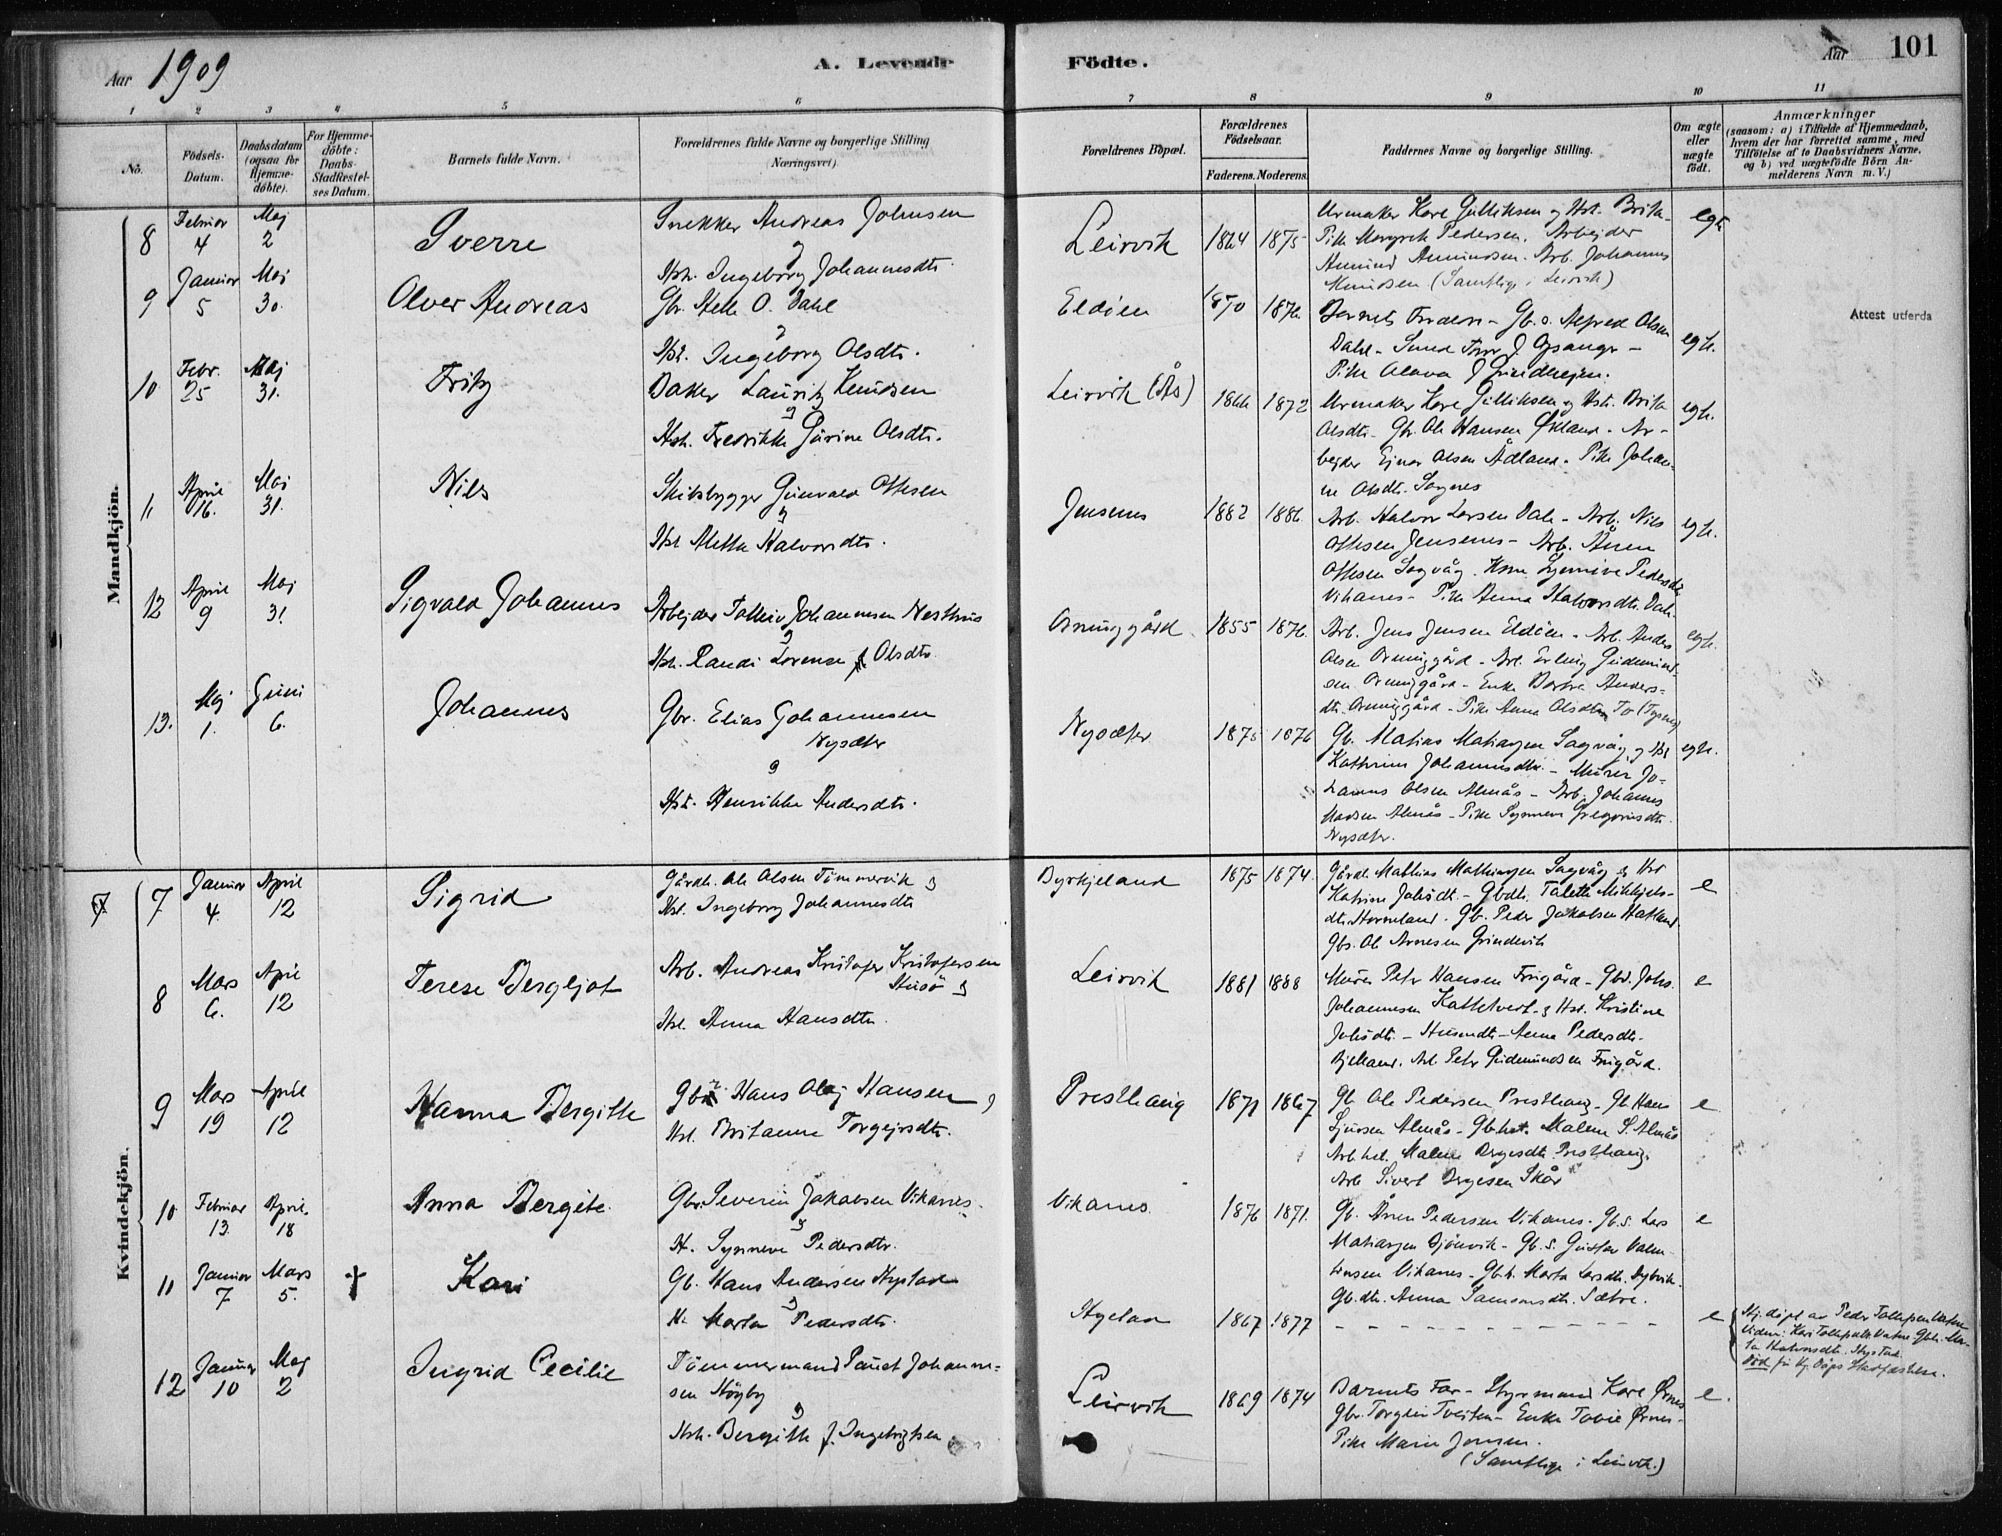 Aar 1909
A. Levende
Födte.
Aar
101
1 2 3 4 5 6 7 8 9 10 11
No.
Födsels-
Datum.
Daabsdatum
(ogsaa for
Hjemme-
döbte).
For Hjemme-
döbte:
Daabs-
Stadfæstel-
ses Datum.
Barnets fulde Navn.
Forældrenes fulde Navne og borgerlige Stilling
(Næringsvei).
Forældrenes Bopæl.
Forældrenes
Födselsaar.
Faderens.
Moderens.
Faddernes Navne og borgerlige Stilling.
Om ægte
eller
uægte
födt.
Anmærkninger
(saasom: a) i Tilfælde af Hjemmedaab,
hvem der har forrettet samme, med
Tilföielse af to Daabsvidners Navne,
og b) ved uægtefödte Börn An-
melderens Navn m. V.)
Mandkjön.
8
Februar
4
Maj
2
Sverre
Snekker Andreas Johnsen
og
Hst. Ingeborg Johannesdtr.
Leirvik
1864
1875
Urmaker Kore Gulliksen og Hst. Brita
Pike Margrete Pedersen. Arbejder
Amund Amundsen. Arb. Johannes
Knudsen (Samtlige i Leirvik)
egte
9
Januar
5
Maj
30.
Olver Andreas
Gbr. Helle O. Dahl
og
Hst. Ingeborg Olsdtr.
Eldöen
1870
1876.
Barnets Fader - Gb.s. Alfred Olsen
Dahl -
Pike Olava J
egte.
Attest utferda
10
Febr.
25
Maj
31.
Fritz
Baker Lauritz Knudsen
og
Hst. Fredrikke Gurine Olsdtr.
Leirvik (Ås)
1866
1872
Urmaker Kore Gulliksen og Hst. Brita
Olsdtr. Gbr. Ole Hansen Økland - Ar-
bejder Ejnar Olsen Ådland - Pike Johan-
ne Olsdtr. Sagnes
egte.
11
April
16.
Maj
31.
Nils
Skibsbygger Gunvald Ottesen
og
Hst Mette Halvorsdtr.
Jensenes
1882
1886.
Arb. Halvor Larsen Dale - Arb. Nils
Ottesen Jensenes - Arb. Ånen
Ottesen Sagvåg. Kone Synnive Pedersdtr
Vikanes - Pike Anna Halvorsdtr. Dale
egte.
12
April
9
Maj
31.
Sigvald Johannes
Arbejder Tolleiv Johannesen Nesthus
og
Hst. Randi Lorense Olsdtr.
Orninggård
1855
1876.
Arb. Jens Jensen Eldöen - Arb. Anders
Olsen Orninggård - Arb. Erling Gudmund-
sen Orninggård - Enke Barbra Anders-
dtr. Orninggård - Pike Anna Olsdtr To (Tysnes)
egte.
13.
Maj
1.
Juni
6.
Johannes
Gbr. Elias Johannesen
Nysæter
og
Hst. Henrikke Andersdtr.
Nysæter
1875
1876
Gb. Matias Matiasen Sagvåg og Hst
Kathrine Johannesdtr. - Murer Jo-
hannes Olsen Almås - Arb. Johannes
Madsen Almås - Pike Synneve Gregoriusdtr.
Nysæter.
egte.
Kvindekjön.
7
Januar
4.
April
12
Sigrid
Gårdb. Ole Olsen Tömmervik og
Hst. Ingeborg Johannesdtr
Byrkjeland
1875
1874.
Gårdb. Mathias Mathiasen Sagvåg og Hst
Katrine Johsdtr. - Gbdtr. Talette Mikkjels-
dtr. Horneland. Gb. Peder Jakobsen Hatland
Gbs. Ole Arnesen Grindevik
e
8
Mars
6.
April
12
Terese Bergljot
Arb. Andreas Kristofer Kristofersen
Stusö og
Hst. Anna Hansdtr.
Leirvik
1881
1888
Murer Peter Hansen Frugård - Gbr. Johs.
Johannesen Kattetveit og Hst. Kristine
Johsdtr. - Husmdtr - Anna Pedersdtr.
Bjelland. Arb Peter Gudmundsen Frugård.
e
9
Mars
19
April
12
Hanna Bergitte
Gbr. Hans Olaj Hansen og
Hst. Britanna Torgejrsdtr.
Presthaug
1871
1867
Gb Ole Pedersen Presthaug - Gb Hans
Sjursen Almås - Gb.hst. Malene S. Almås
Arb. hst. Malene Børgesdtr. Presthaug.
Arb Sivert Børgesen Skår
e
10
Februar
13.
April.
18
Anna Bergite
Gbr. Severin Jakobsen Vikanes.
og
H. Synneve Pedersdtr.
Vikanes
1876
1871.
Gb. Ånen Pedersen Vikanes. Gb.s. Lars
Matiasen Djönvik - Gb.s. Gustav Valen-
tinsen Vikanes - Gb.h. Marta Larsdtr. Dybvik.
Gb.dtr. Anna Samsonsdtr. Sætre.
e
11
Januar
7
Mars
5.
†
Kari
Gb. Hans Andersen Hystad
og
H. Marta Pedersdtr.
Hystad
1867
1877
e
Hj.döpt av Peder
død før Hj. Dåps Stadfæstelse.
12
Januar
10
Maj
2
Ingrid Cecilie
Tömmermand Paul Johanne-
sen Höyby
og
Hst. Bergitte J. Ingebrigtsen
Leirvik
1869
1874
Barnets Far - Styrmand Kore Ørnes
Gbr. Torgeir Tveiten - Enke Tobie Ørnes -
Pike Marie Jensen.
(Samtlige i Leirvik.)
e.